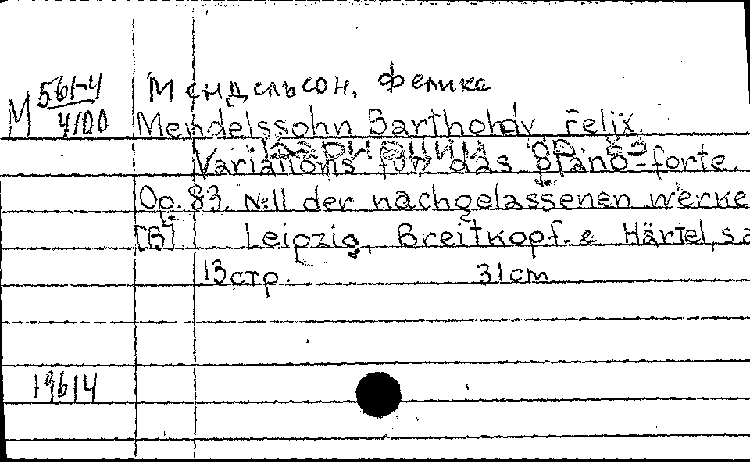 М 561-4
4100
Мендельсон, Феликс
Mendelssohn Bartholdy Felix
Вариации op. 83
Variations für das piano-forte
Op. 83. №11 der nachgelassenen werke
[B] Leipzig, Breitkopf & Härtel, s.a
13 стр. 31 cm
19614